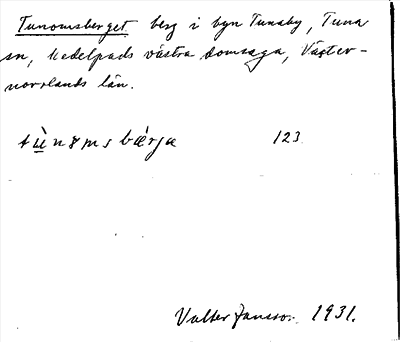 Tunomsberget berg i byn Tunaby, Tuna
sn, Medelpads västra domsaga, Väster-
norrlands län.
tùnomsbærjæ 123
Valter Jansson. 1931.